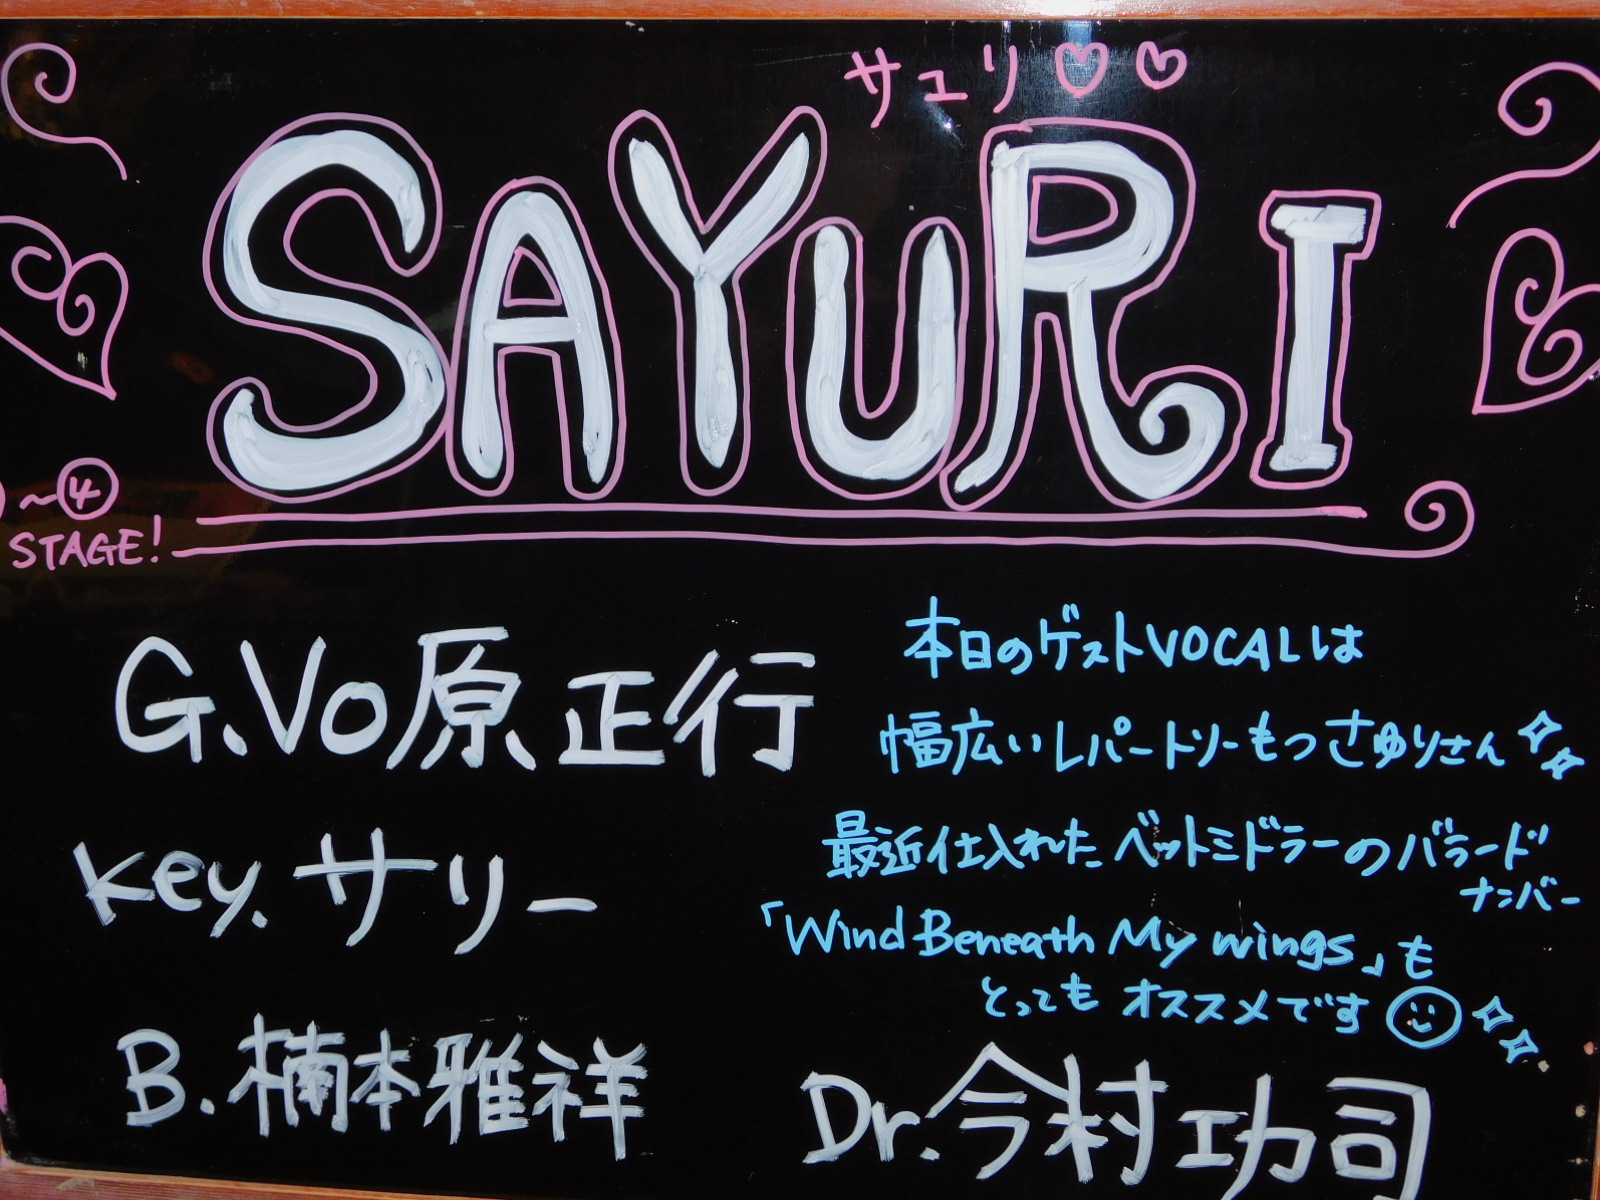 サユリ♡♡
SAYURI
~④
STAGE!
G.Vo 原 正行
Key. サリー
B. 楠本雅祥
本日のゲストVOCALは
幅広いレパートリーもつさゆりさん
最近仕入れたベットミドラーのバラード
ナンバー
「Wind Beneath My wings」も
とってもオススメです
Dr. 今村功司